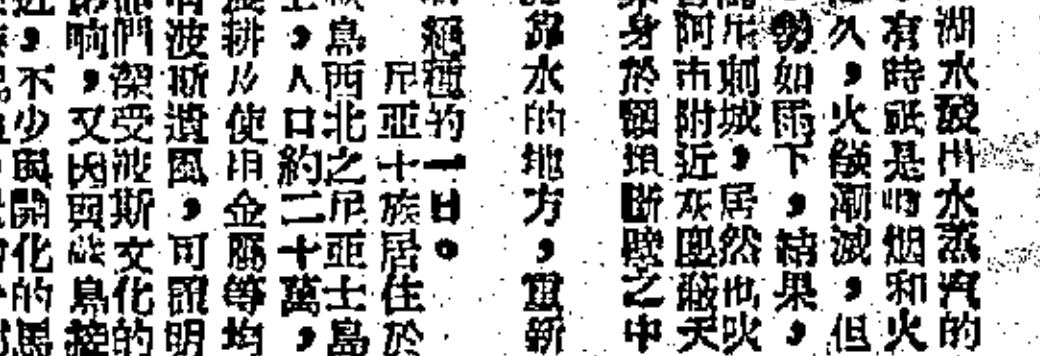 湖水發出水蒸汽的
有時祇是噴烟和火
久，火燄漸滅，但
勢如雨下，結果，
刺城，居然也吹
阿市附近灰塵蔽天
身於頹垣斷壁之中
靠水的地方，重新
絕種的一日。
尼亞士族居住於
島西北之尼亞士島
，人口約二十萬，
耕及使用金屬等均
波斯遺風，可證明
們深受波斯文化的
响，又因與 島接
不少與開化的馬